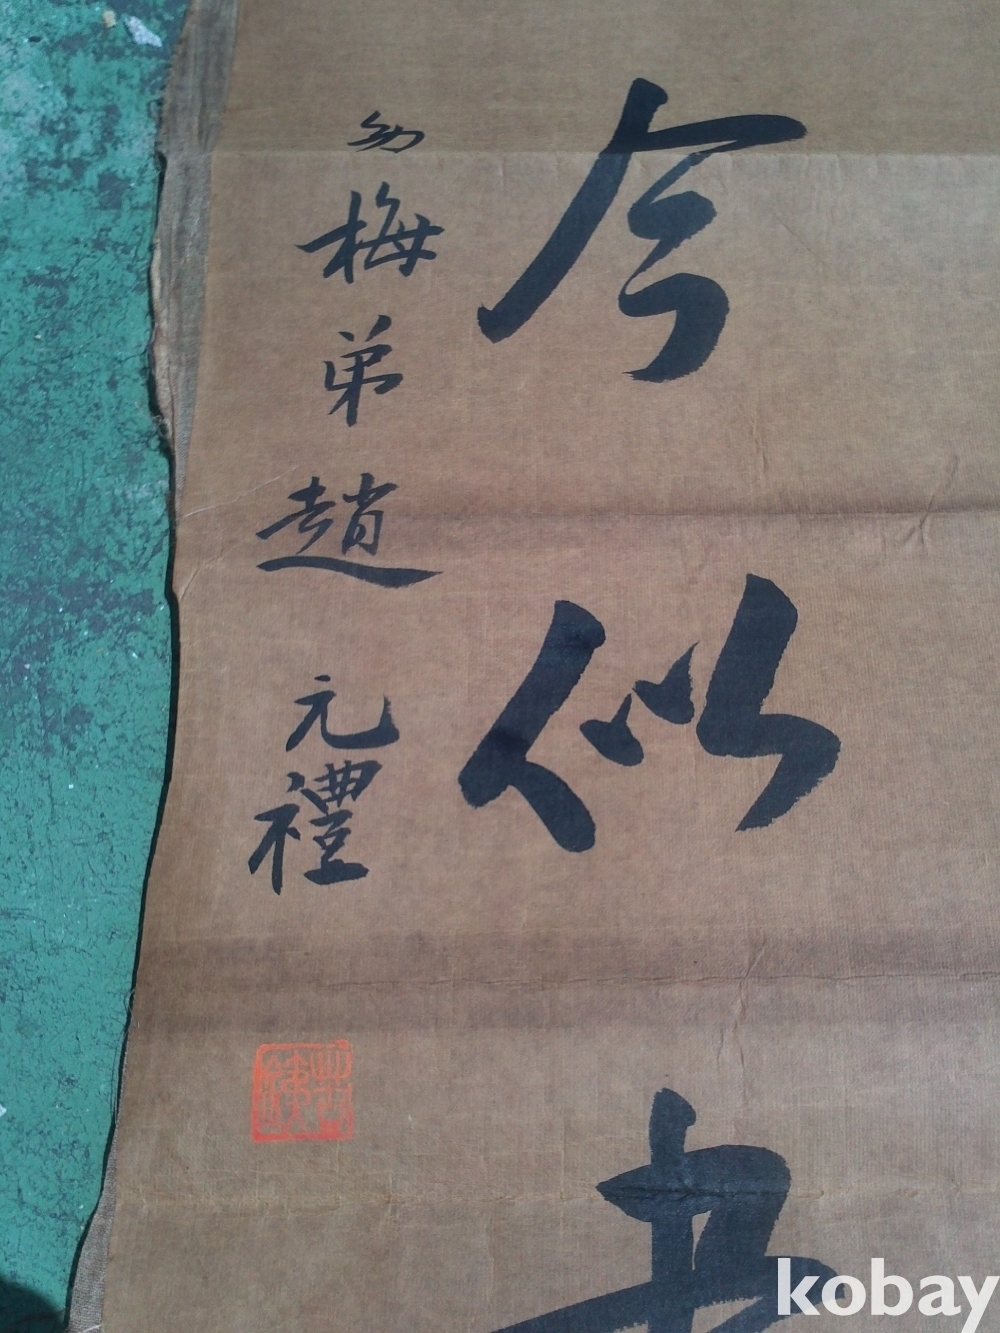 今似
幼梅弟趙元禮
kobay